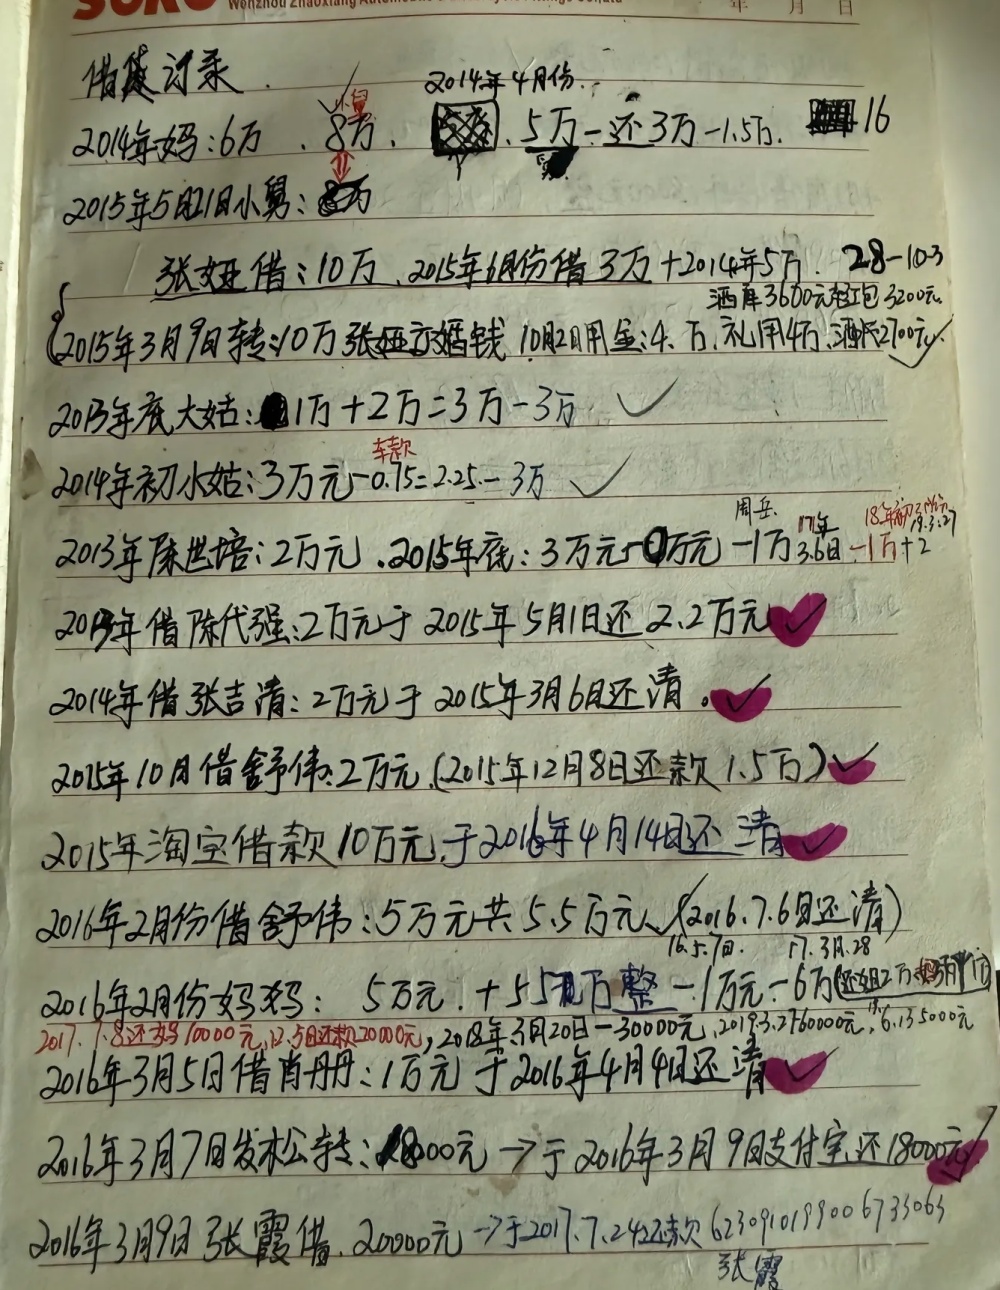 年 月 日
借贷记录.
2014年4月份.
小舅
2014年妈:6万 、8万、 5万-还3万-1.5万. 16
2015年5月21日小舅:8万
张娅借:10万、2015年6月份借3万+2014年5万. 28-10-3
酒席3600元红包3200元
2015年3月9日转:10万张娅交婚钱 10月2日用金:4.万、礼用4万、酒2700元
2013年底大姑:1万+2万=3万-3万
车款
2014年初小姑:3万元-0.75=2.25-3万
周岳. 17年 18年 19.3.27
2013年陈世培:2万元、2015年底:3万元-0万元-1万 3.6日-1万+2
2013年借陈代强:2万元于2015年5月1日还2.2万元
2014年借张吉清:2万元于2015年3月6日还清。
2015年10月借舒伟:2万元(2015年12月8日还款1.5万)
2015年淘宝借款10万元.于2016年4月14日还清
2016年2月份借舒伟:5万元共5.5万元、(2016.7.6日还清)
16.5.7日. 17.3月.28
2016年2月份妈妈: 5万元.+5万整-1万元-6万
2017.7.8还妈10000元,12.5日还款20000元,2018年3月20日-30000元,2019.3.27 60000元,6.13 5000元
2016年3月5日借肖丹丹:1万元于2016年4月4日还清
2016年3月7日发林公转:18000元→于2016年3月9日支付宝还18000元
2016年3月9日张霞借.20000元→于2017.7.24还款6230910199006733063
张霞